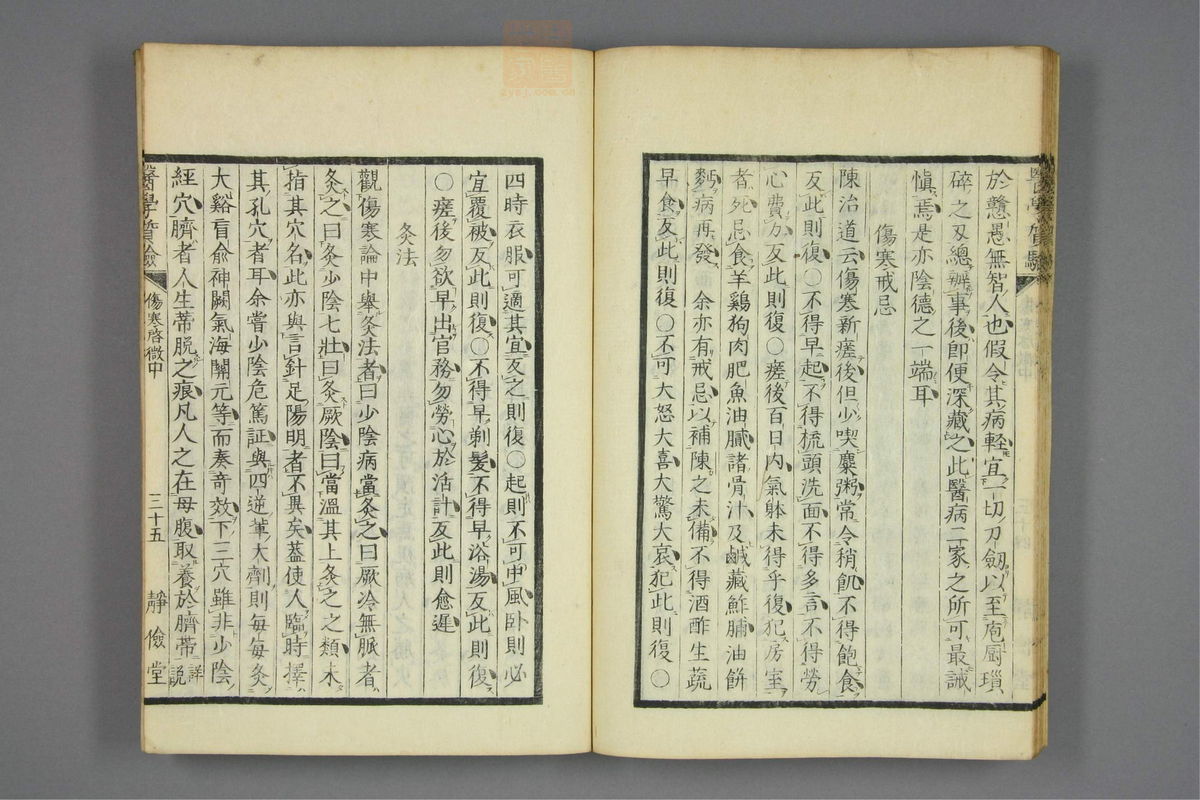 於戇愚無智人也假令其病軽宜一切刀劔以至庖厨瑣
碎之刄總辦事後即便深藏之此醫病二家之所可最誡
愼焉是亦陰德之一端耳
傷寒戒忌
陳治道云傷寒新瘥後但少喫麋粥常令稍飢不得飽食
反此則復〇不得早起不得梳頭洗面不得多言不得勞
心費力反此則復〇瘥後百日内氣躰未得乎復犯房室
者死忌食羊鷄狗肉肥魚油膩諸骨汁及鹹藏鮓脯油餅
麪病再發　余亦有戒忌以補陳之未備不得酒酢生蔬
早食反此則復〇不可大怒大喜大驚大哀犯此則復〇
四時衣服可適其宜反之則復〇起則不可中風卧則必
宜覆被反此則復〇不得早剃髪不得早浴湯反此則復
〇瘥後勿欲早出官務勿勞心於活計反此則愈遲
灸法
觀傷寒論中舉灸法者曰少陰病當灸之曰厥冷無脈者
灸之曰灸少陰七壯曰灸厥陰曰當溫其上灸之之類未
指其穴名此亦與言針足陽明者不異矣蓋使人臨時擇
其孔穴者耳余嘗少陰危篤証與四逆軰大劑則每每灸
大谿肓俞神闕氣海關元等而奏奇效下三穴雖非少陰
經穴臍者人生蒂脱之痕凡人之在母腹取養於臍蒂詳説
醫學質驗
傷寒啓微中
三十五
靜儉堂